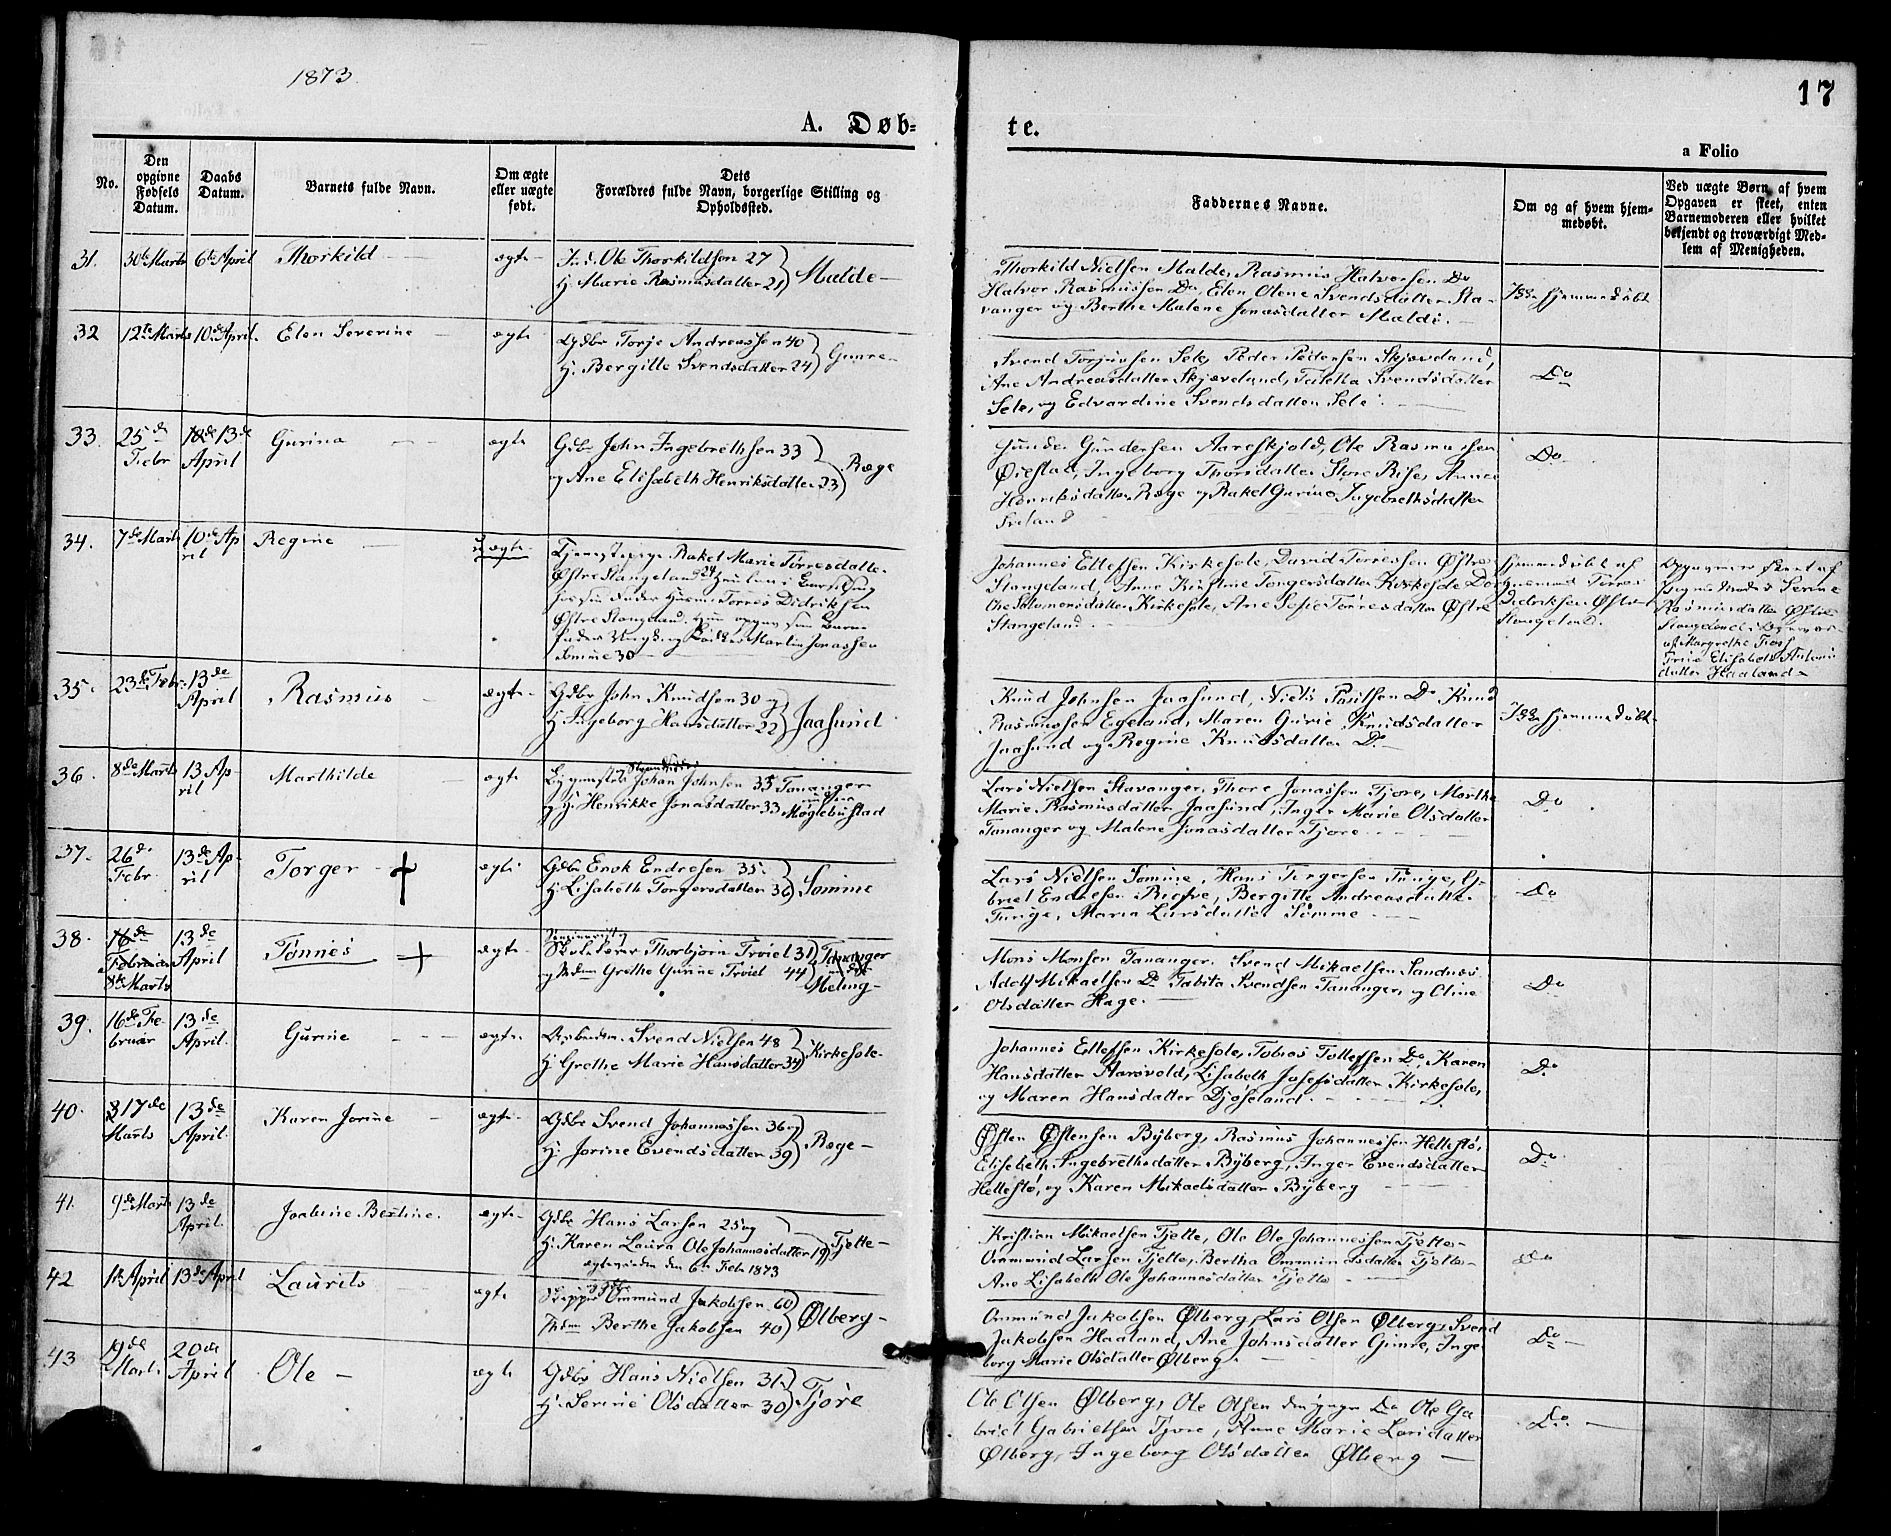 1873
17
A. Døb=
te.
a Folio
No.
Den opgivne Fødsels Datum.
Daabs Datum.
Barnets fulde Navn.
Om ægte eller uægte født.
Dets Forældres fulde Navn, borgerlige Stilling og Opholdssted.
Faddernes Navne.
Om og af hvem hjemmedøbt.
Ved uægte Børn, af hvem
Opgaven er skeet, enten
Barnemoderen eller hvilket
bekjendt og troværdigt Med-
lem af Menigheden.
31. 30te Marts 6te April Thorkild ægte Ole Thorkildsen 27
H. Marie Rasmusdatter 21 Malde
Thorkild Nielsen Malde, Rasmus Halvorsen Do
Halvor Rasmussen Do, Elen Olene Svendsdatter Sta-
vanger og Berthe Malene Jonasdatter Malde.
Ikke hjemmedøbt
32 12te Marts 10de April. Elen Severine ægte Gdbr Torje Andreassen 40
H. Bergitte Svendsdatter 24 Gimre
Svend Torjussen Sele, Peder Pedersen Skjæveland,
Ane Andreasdatter Skjæveland, Taletta Svendsdatter
Sele, og Edvardine Svendsdatter Sele.
Do
33. 25de Febr 13de April Gurina ægte Gdbr John Ingebrethsen 33
og Ane Elisabeth Henriksdatter 23 Ræge
Gunder Gundersen Aareskjold, Ole Rasmussen
Øiestad, Ingeborg Thorsdatter Store Rise, Anne
Henriksdatter Ræge og Rakel Gurine Ingebrethsdatter
Do
34. 7de Marts 10de April Regine uægte
Tjenestepige Rakel Marie Torresdatter
Østre Stangeland
hos sin Fader Huusm. Torres Didriksen
Østre Stangeland.
Martin Jonassen
Sømme 30
Johannes Ellefsen Kirkesole, David Torressen Østre
Stangeland, Anne Kirstine Torgersdatter Kirkesole
Ole Salomonsdatter Kirkesole, Ane Sofie Torresdatter Østre
Stangeland.
Hjemmedøbt af
Torres
Didriksen Østre
Stangeland.
Serine
Rasmusdatter Østre
Stangeland
Elisabeth
datter Haaland
35. 23de Febr. 13de April Rasmus ægte Gdbr John Knudsen 30 og
H. Ingeborg Hansdatter 22 Jaasund
Knud Johnsen Jaasund, Niels Paulsen Do Knud
Rasmussen Egeland, Maren Gurie Knudsdatter
Jaasund og Regine Knudsdatter Do
Ikke hjemmedøbt.
36. 8de Marts 13 April Marthilde ægte Johan Johnsen 35 Tananger
og H. Henrikke Jonasdatter 33 Møglebustad
Lars Nielsen Stavanger, Thore Jonassen Tjore, Marthe
Marie Rasmusdatter Jaasund, Inger Marie Olsdatter
Tananger og Malene Jonasdatter Tjore
Do
37. 26de Febr. 13de April Torger + ægte Gdbr Enok Endresen 35.
H. Lisabeth Torgersdatter 36 Sømme
Lars Nielsen Sømme, Hans Torgersen Tunge, Ga-
briel Endresen Riskre, Bergitte Andreasdatter
Tunge, Maria Larsdatter Sømme
Do
38. 16de Februar 8de Marts 13de April Tønnes + ægte Seminarist og
Skolelærer Thorbjørn Træet 31 Tananger
og Mdm Grethe Gurine Træet 44 Meling
Mons Monsen Tananger. Svend Mikaelsen Sandnes
Adolf Mikaelsen Do Tabita Svendsen Tananger, og Oline
Olsdatter Hage.
Do
39. 16de Februar 13de April. Gurine ægte Svend Nielsen 48
H. Grethe Marie Hansdatter 34 Kirkesole
Johannes Ellefsen Kirkesole, Tobias Tollefsen Do, Karen
Hansdatter Aarsvold, Lisabeth Josefsdatter Kirkesole,
og Maren Hansdatter Djøseland.
Do
40. 17de Marts 13de April. Karen Jorine ægte Gdbr Svend Johannessen 36 og
H. Jorine Evendsdatter 39 Ræge
Østen Østensen Byberg, Rasmus Johannessen Hellestø,
Elisebeth Ingebrethsdatter Byberg, Inger Evendsdatter
Hellestø, og Karen Mikaelsdatter Byberg
Do
41. 9de Marts 13de April. Joakine Bertine. ægte Gdbr Hans Larsen 25 og
H. Karen Laura Ole Johannesdatter 19 Tjelte
ægteviede den 6te Febr 1873
Kristian Mikaelsen Tjelte, Ole Ole Johannessen Tjelte
Ommund Larsen Tjelte, Bertha Ommundsdatter Tjelte
Ane Lisabeth Ole Johannesdatter Tjelte
Do
42 1te April 13de April Laurits ægte Skipper Ommund Jakobsen 60
Mdm Berthe Jakobsen 40 Ølberg
Ommund Jakobsen Ølberg, Lars Olsen Ølberg, Svend
Jakobsen Haaland, Ane Johnsdatter Gimre, Inge-
borg Marie Olsdatter Ølberg.
Do
43 19de Marts 20de April Ole ægte Gdbr Hans Nielsen 31
H. Serine Olsdatter 30 Tjore
Ole Olsen Ølberg, Ole Olsen den yngre Do Ole Ga
briel Gabrielsen Tjore, Anne Marie Larsdatter
Ølberg, Ingeborg Olsdatter Ølberg
Do